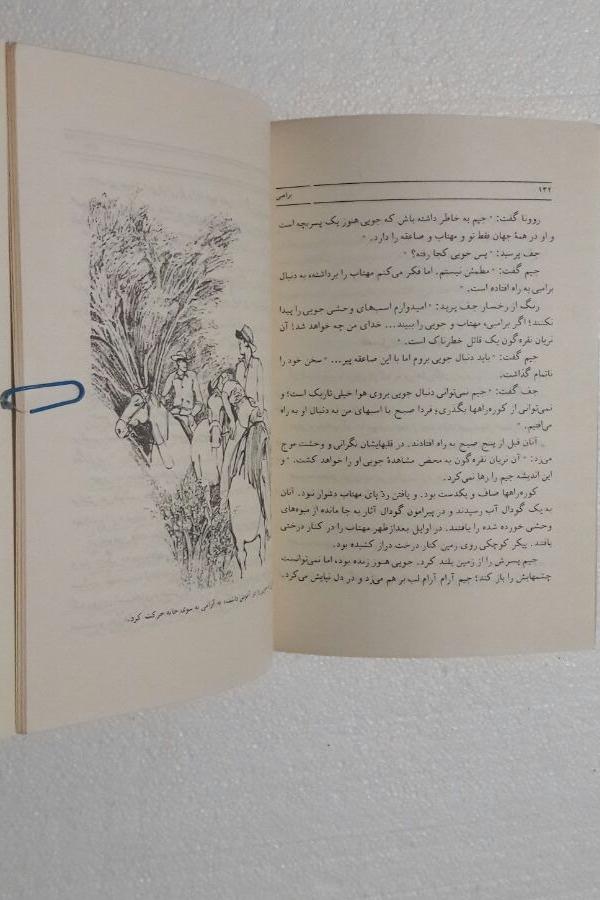 ۱۳۲
برامبی
روونا گفت: « جیم به خاطر داشته باش که جویی هنوز یک پسربچه است
و او در همهٔ جهان فقط تو و مهتاب و صاعقه را دارد. »
جف پرسید: « پس جویی کجا رفته؟ »
جیم گفت: « مطمئن نیستم. اما فکر می‌کنم مهتاب را برداشته، به دنبال
برامبی به راه افتاده است. »
رنگ از رخسار جف پرید: « امیدوارم اسب‌های وحشی جویی را پیدا
نکنند؛ اگر برامبی، مهتاب و جویی را ببیند... خدای من چه خواهد شد؛ آن
نریان نقره‌گون یک قاتل خطرناک است. »
جیم گفت: « باید دنبال جویی بروم اما با این صاعقه پیر... » سخن خود را
ناتمام گذاشت.
جف گفت: « جیم نمی‌توانی دنبال جویی بروی هوا خیلی تاریک است؛ و
نمی‌توانی از کوره‌راهها بگذری؛ فردا صبح با اسبهای من به دنبال او به راه
می‌افتیم. »
آنان قبل از پنج صبح به راه افتادند. در قلبهایشان نگرانی و وحشت موج
می‌زد: « آن نریان نقره‌گون به محض مشاهدهٔ جویی او را خواهد کشت. » و
این اندیشه جیم را رها نمی‌کرد.
کوره‌راهها صاف و یکدست بود. و یافتن ردّ پای مهتاب دشوار نبود. آنان
به یک گودال آب رسیدند و در پیرامون گودال آثار به جا مانده از میوه‌های
وحشی خورده شده را یافتند. در اوایل بعدازظهر مهتاب را در کنار درختی
یافتند. پیکر کوچکی روی زمین کنار درخت دراز کشیده بود.
جیم پسرش را از زمین بلند کرد. جویی هنوز زنده بود، اما نمی‌توانست
چشمهایش را باز کند؛ جیم آرام آرام لب بر هم می‌زد و در دل نیایش می‌کرد.
آغوش داشت، به آرامی به سوی خانه حرکت کرد.